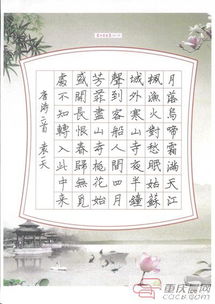 月落烏啼霜滿天江
楓漁火對愁眠姑蘇
城外寒山寺夜半鐘
聲到客船人間四月
芳菲盡山寺桃花始
盛開長恨春歸無覓
處不知轉入此中來
唐詩二首 袁天
重庆晨网